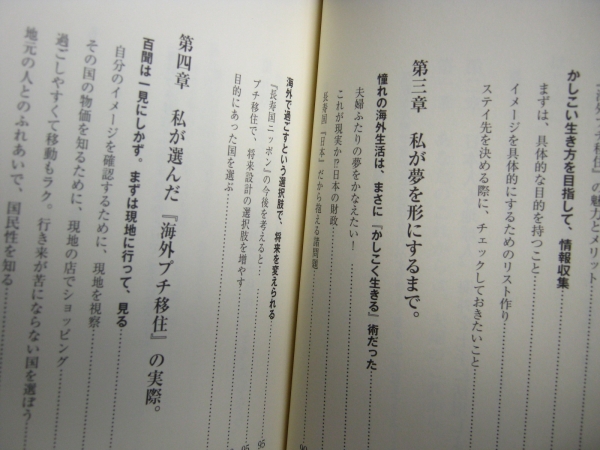 『海外プチ移住』の魅力とメリット
かしこい生き方を目指して、情報収集
まずは、具体的な目的を持つこと
イメージを具体的にするためのリスト作り
ステイ先を決める際に、チェックしておきたいこと
第三章　私が夢を形にするまで。
憧れの海外生活は、まさに『かしこく生きる』術だった
夫婦ふたりの夢をかなえたい！
これが現実か!?日本の財政
長寿国『日本』だから抱える諸問題
海外で過ごすという選択肢で、将来を変えられる
『長寿国ニッポン』の今後を考えると…
プチ移住で、将来設計の選択肢を増やす
目的にあった国を選ぶ
第四章　私が選んだ『海外プチ移住』の実際。
百聞は一見にしかず。まずは現地に行って、見る
自分のイメージを確認するために、現地を視察
その国の物価を知るために、現地の店でショッピング
過ごしやすくて移動もラク。行き来が苦にならない国を選ぼう
地元の人とのふれあいで、国民性を知る